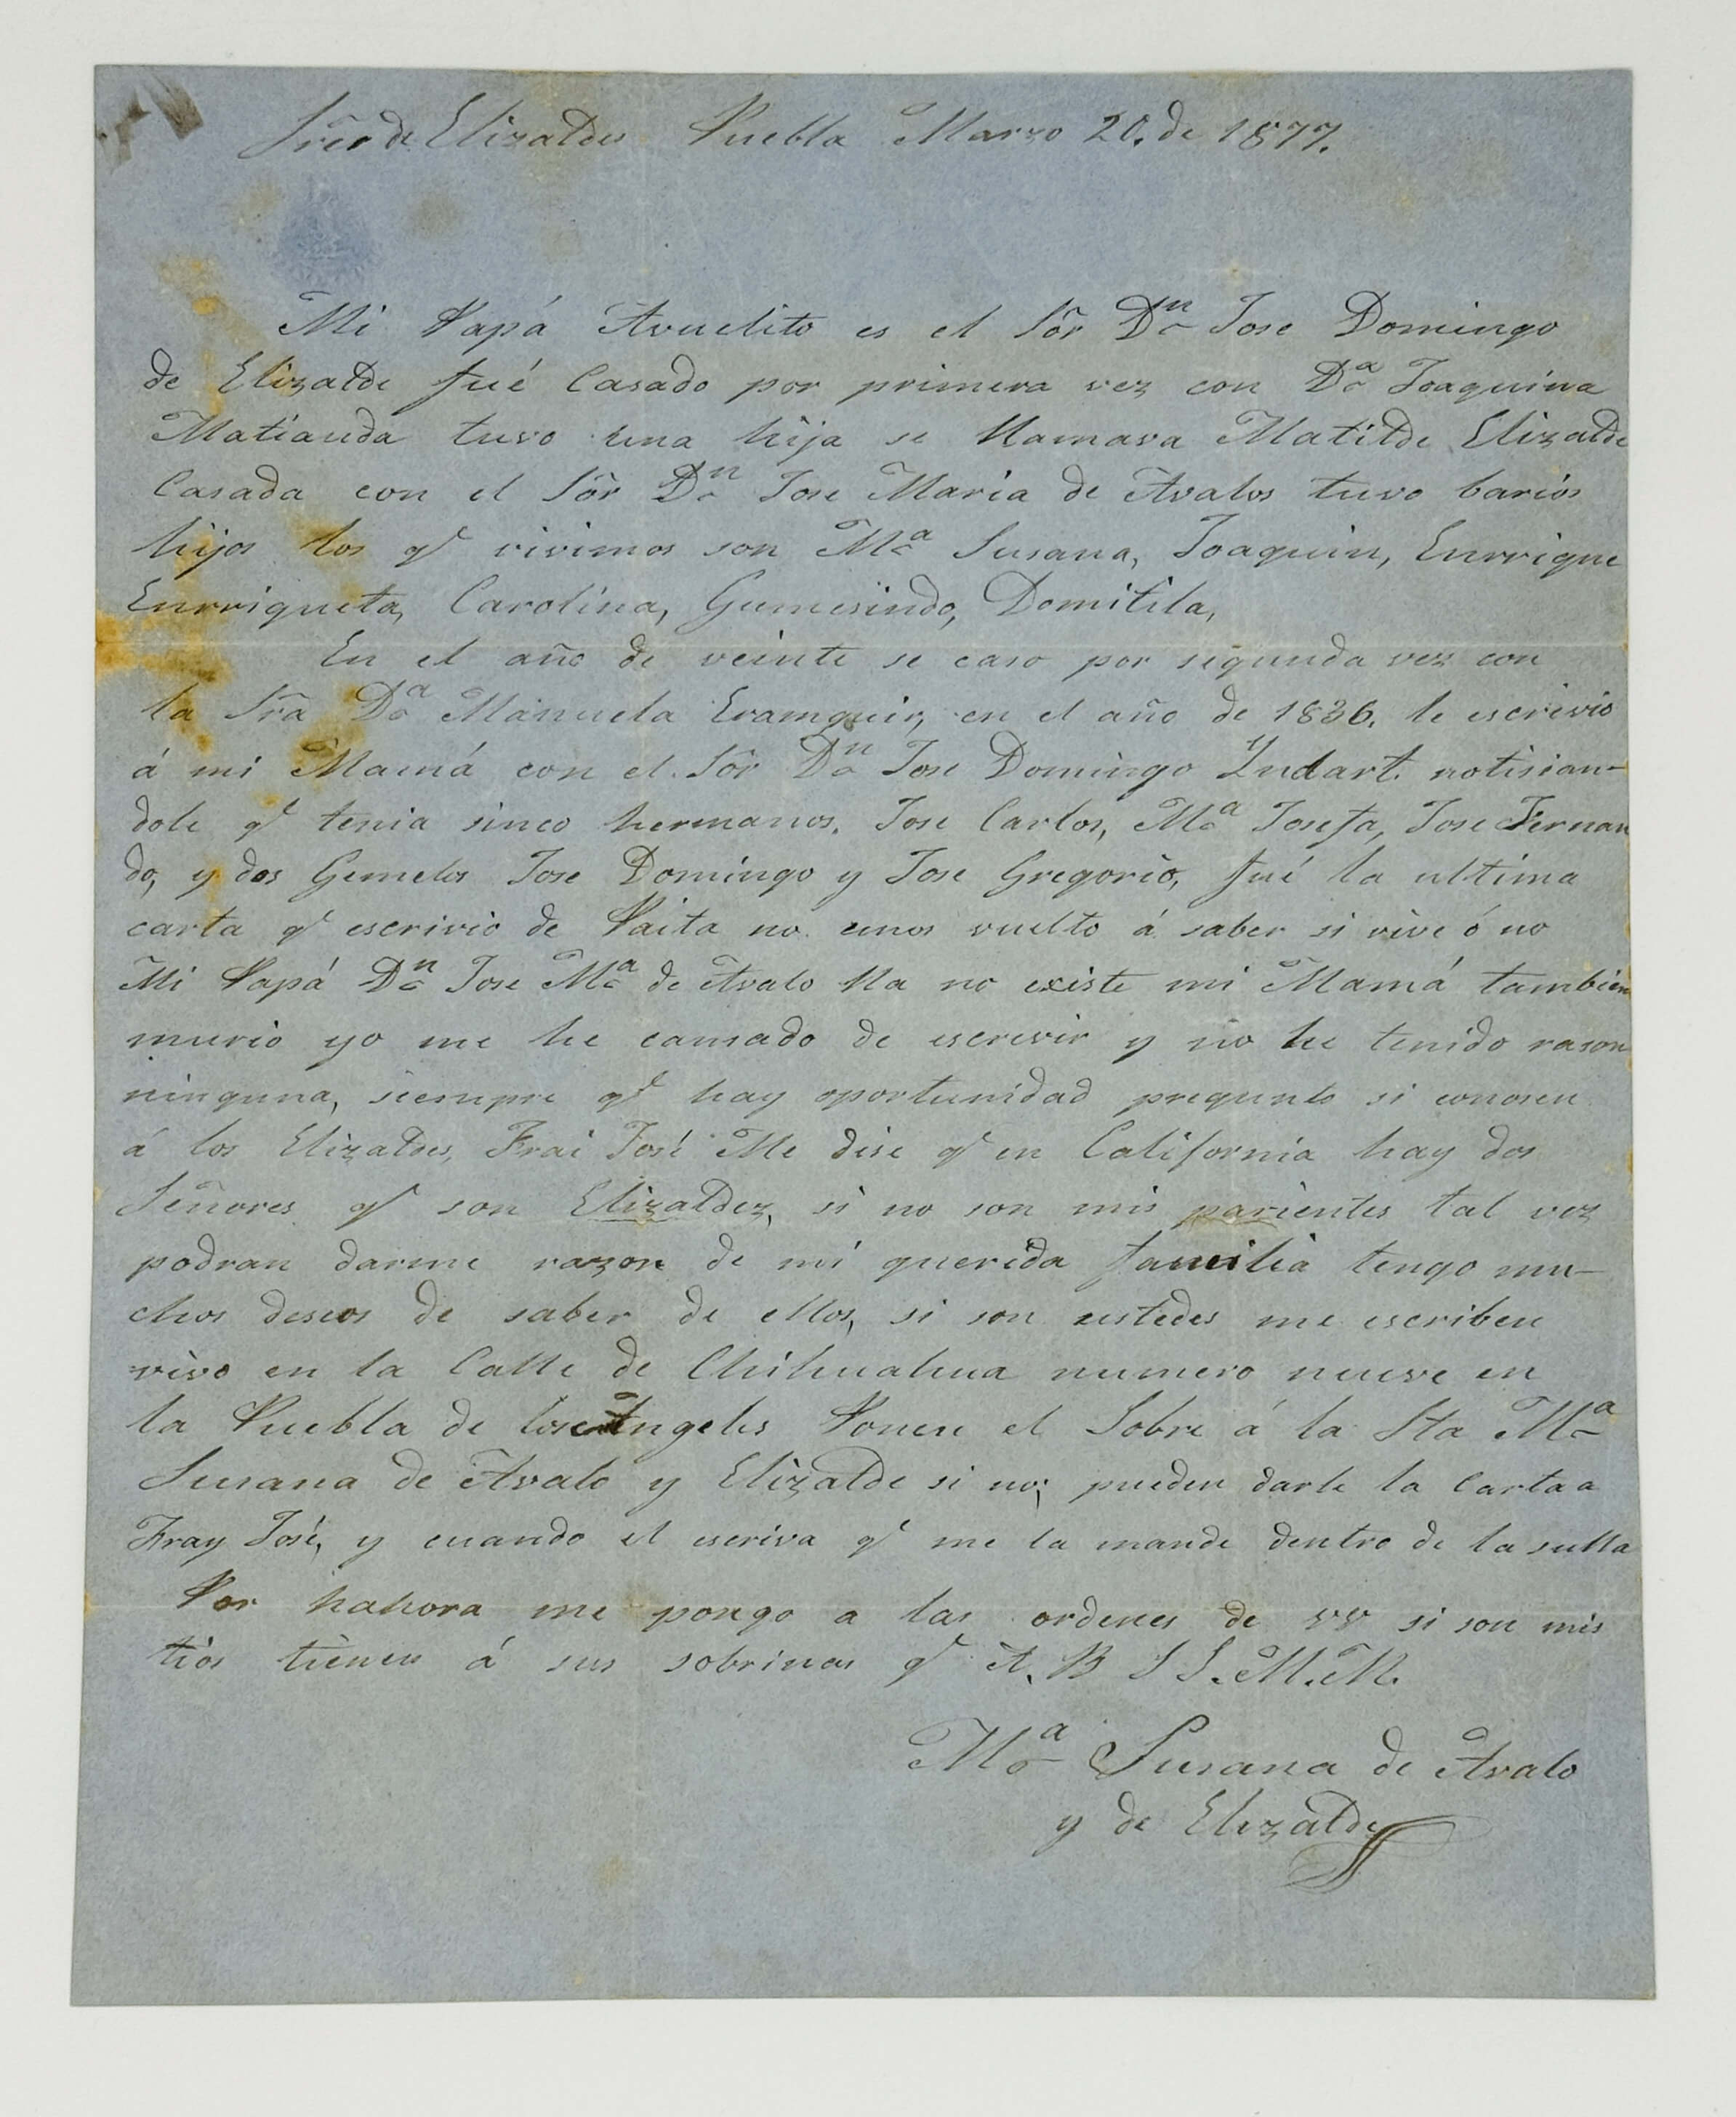 Sres de Elizaldes Puebla Marzo 20. de 1877.
Mi Papá Avuelito es el Sôr Dn Jose Domingo
de Elizalde fué Casado por primera vez con Da Joaquina
Matianda tuvo una hija se llamava Matilde Elizalde
Casada con el Sôr Dn Jose Maria de Avalos tuvo barios
hijos los qe vivimos son Ma Susana, Joaquin, Enrrique
Enrriqueta, Carolina, Gumesindo, Domitila,
En el año de veinte se caso por segunda vez con
la Sra Da Manuela en el año de 1836. le escrivio
á mi Mamá con el Sôr Dn Jose Domingo Yndart. notisian-
dole qe tenia sinco hermanos. Jose Carlos, Ma Josefa, Jose Fernan
do, y dos Gemelos Jose Domingo y Jose Gregorio, fué la ultima
carta qe escrivio de Paita no emos vuelto á saber si vive ó no
Mi Papá Dn Jose Ma de Avalo lla no existe mi Mamá tambien
murio yo me he cansado de escrivir y no he tenido rason
ninguna, siempre qe hay oportunidad pregunto si conosen
á los Elizaldes, Frai José Me dise qe en California hay dos
Señores qe son Elizaldez, si no son mis parientes tal vez
podran darme razon de mi querida familia tengo mu-
chos deseos de saber de ellos, si son ustedes me escriben
vivo en la Calle de Chihuahua numero nueve en
la Puebla de los Angeles Ponen el Sobre á la Sta Ma
Susana de Avalo y Elizalde si no; pueden darle la Carta a
Fray José, y cuando el escriva qe me la mande dentro de la sulla
Por hahora me pongo a las ordenes de VV si son mis
tios tienen á sus sobrinas qe A. B S S. M. M.
Ma Susana de Avalo
y de Elizalde